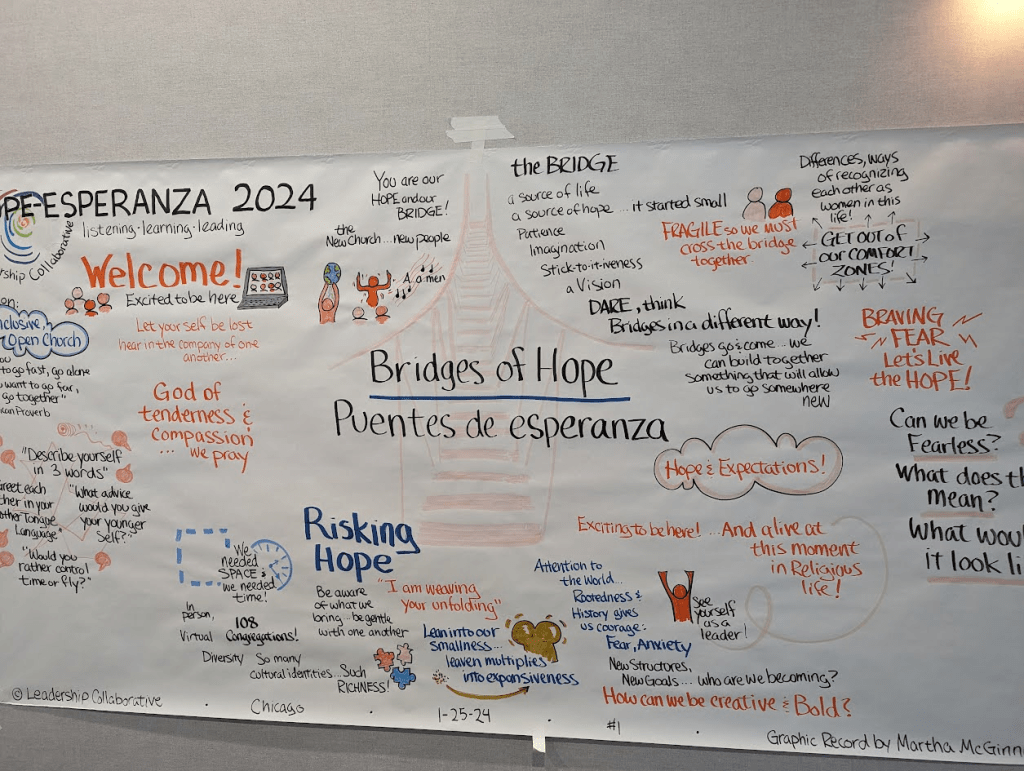 PE-ESPERANZA 2024
listening·learning·leading
rship Collaborative
Welcome!
Excited to be here
on:
nclusive,
Open Church
ou
to go fast, go alone
want to go far,
go together"
can Proverb
Let yourself be lost
hear in the company of one
another...
God of
tenderness &
Compassion
... we pray
"Describe yourself
in 3 words"
reet each
ther in your
other Tongue
Language"
"What advice
would you give
your younger
self?"
"Would you
rather control
time or fly?"
You are our
HOPE and our
BRIDGE!
the
New Church...new people
A a men
the BRIDGE
a source of life
a source of hope ...it started small
Patience
Imagnation
Stick-to-it-iveness
a Vision
FRAGILE so we must
cross the bridge
together
Differences, ways
of recognizing
each other as
women in this
life!
GET OUT of
our COMFORT
ZONES!
DARE, think
Bridges in a different way!
Bridges go & come...we
can build together
something that will allow
us to go somewhere
new
BRAVING
FEAR
Let's Live
the HOPE!
Bridges of Hope
Puentes de esperanza
Hope & Expectations!
Can we be
Fearless?
What does th
mean?
What wou
it look li
We
needed
SPACE &
we needed
time!
In
person,
Virtual
108
Congregations!
Diversity
So many
cultural identities...Such
RICHNESS!
Risking
Hope
Be aware
of what we
bring...be gentle
with one another
"I am weaving
your unfolding"
Lean into our
smallness...
leaven multiplies
into expansiveness
Exciting to be here! ...And alive at
this moment
in Religious
life!
Attention to
the World...
Rootedness &
History gives
us courage:
Fear, Anxiety
See
yourself
as a
leader!
New Structures,
New Goals... who are we becoming?
How can we be creative & Bold?
© Leadership Collaborative · Chicago · 1-25-24 · #1 ·
Graphic Record by Martha McGinn